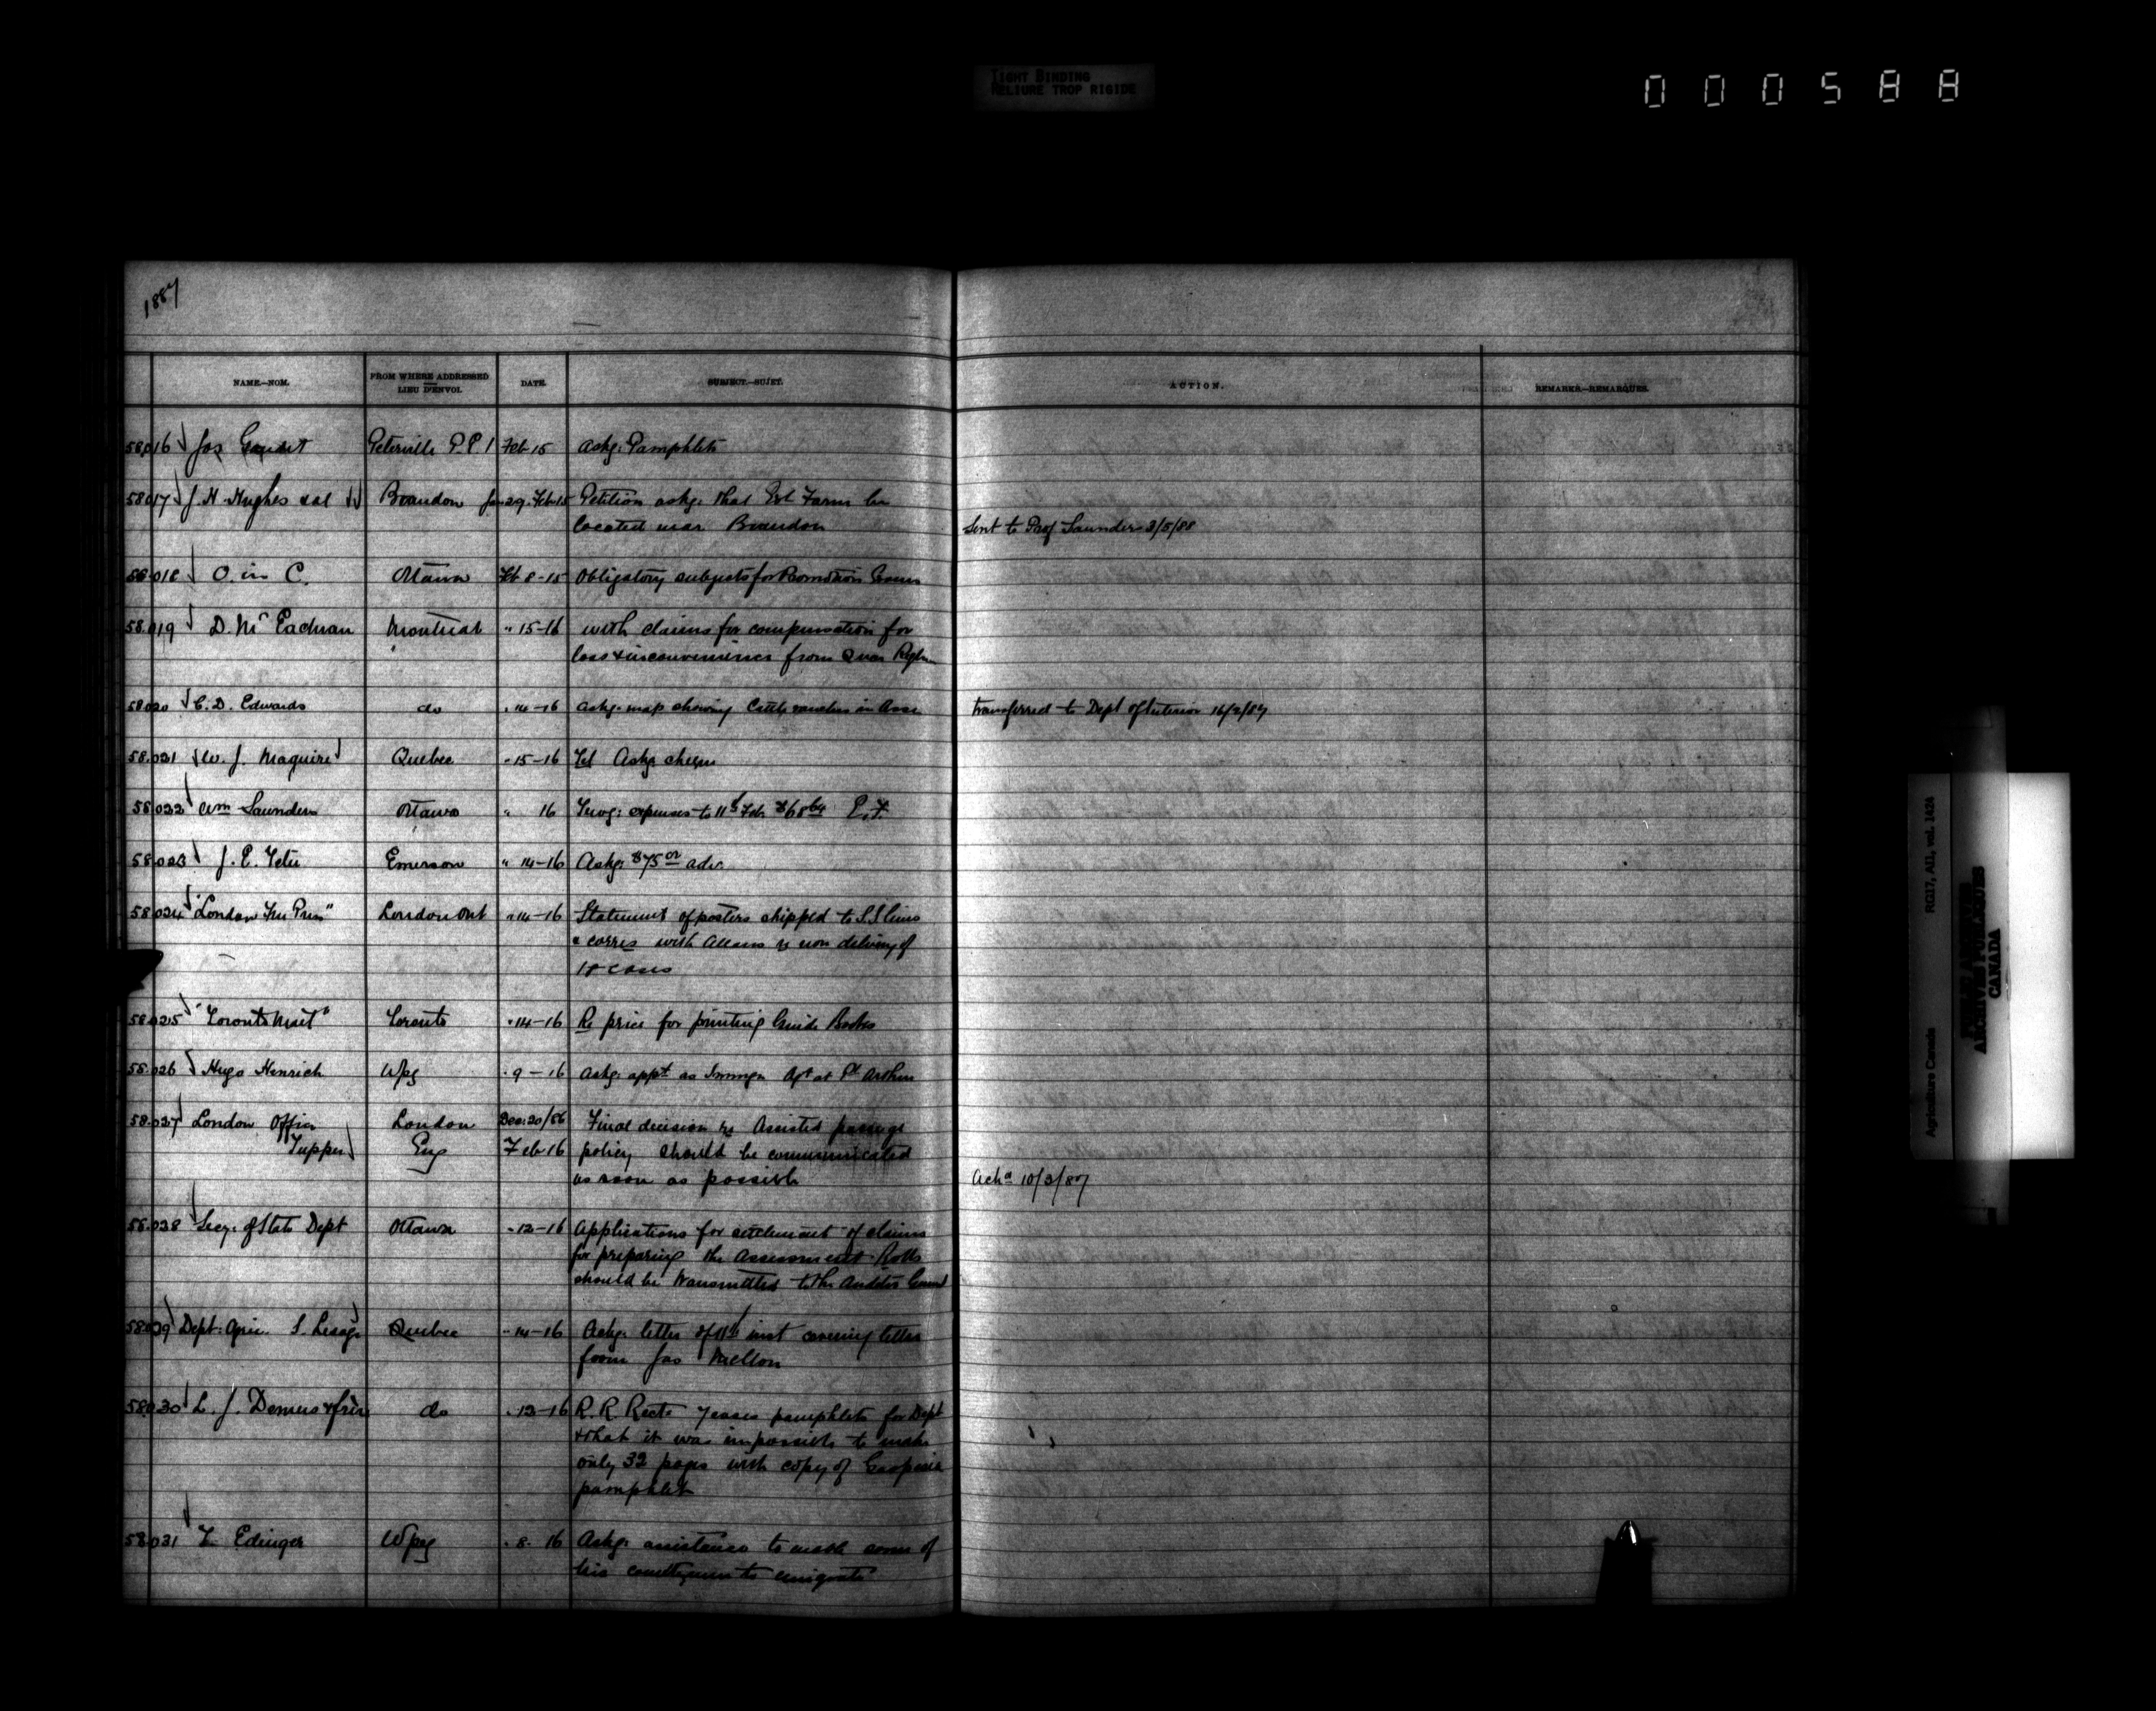 TIGHT BINDING
RELIURE TROP RIGIDE
000588
1887
NAME.—NOM.
FROM WHERE ADDRESSED
LIEU D'ENVOI.
DATE.
SUBJECT.—SUJET.
ACTION.
REMARKS.—REMARQUES.
58016 Jos Gaudet Peterville P.P.I Feb 15 Askg: Pamphlets
58017 J. H. Hughes et al Brandon Jan 29. Feb 15 Petition askg: that Ex Farm be
located near Brandon Sent to Prof Saunders 3/5/88
58018 O. in C. Ottawa Feb 8-15 Obligatory subjects for Promotion Exam
58019 D. McEachran Montreal " 15-16 with claims for compensation for
loss & inconvenience from Quar Regln
58020 C. D. Edwards do " 14-16 Askg. map showing Cattle ranches in Assa transferred to Dept of Interior 16/2/87
58021 W. J. Maguire Quebec " 15-16 Tel Askg cheque
58022 Wm Saunders Ottawa " 16 Travg: expenses to 11th Feb $68 64 E.F.
58023 J. E. Tetu Emerson " 14-16 Askg: $75 00 adv.
58024 "London Free Press" London Ont " 14-16 Statement of posters shipped to S.S. lines
& corres with Allans re non delivery of
18 cases
58025 "Toronto Mail" Toronto " 14-16 Re price for printing Guide Books
58026 Hugo Henrich Wpg " 9-16 Askg: appt as Immgn Agt at Pt Arthur
58027 London Office London Dec: 20/86 Final decision re Assisted passage
Tupper Eng Feb 16 policy should be communicated
as soon as possible Ackd 10/3/87
58028 Secy: of State Dept Ottawa " 12-16 Applications for settlement of claims
for preparing the Assessment Rolls
should be transmitted to the Auditor General
58029 Dept: Agric. S. Lesage Quebec " 14-16 Ackg: letter of 11th inst covering letter
from Jas Mellon
58030 L. J. Demers & frère do " 12-16 R. R. Rects 7 cases pamphlets for Dept
& that it was impossible to make
only 32 pages with copy of Gaspesia
pamphlet
58031 Edinger Wpeg " 8. 16 Askg: assistance to enable some of
his countrymen to emigrate
Agriculture Canada RG17, AII, vol. 1424
PUBLIC ARCHIVES
ARCHIVES PUBLIQUES
CANADA